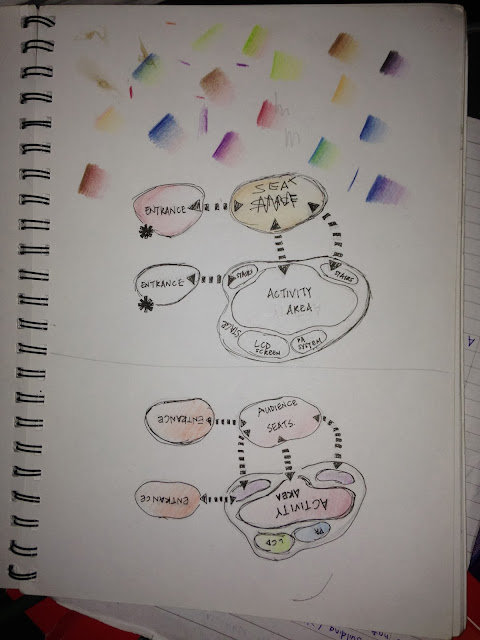 SEAT
ENTRANCE
ENTRANCE
STAIRS
STAIRS
ACTIVITY
AREA
STAGE
LCD
SCREEN
PA
SYSTEM
AUDIENCE
SEATS.
ENTRANCE
ENTRANCE
ACTIVITY
AREA
LCD
PA